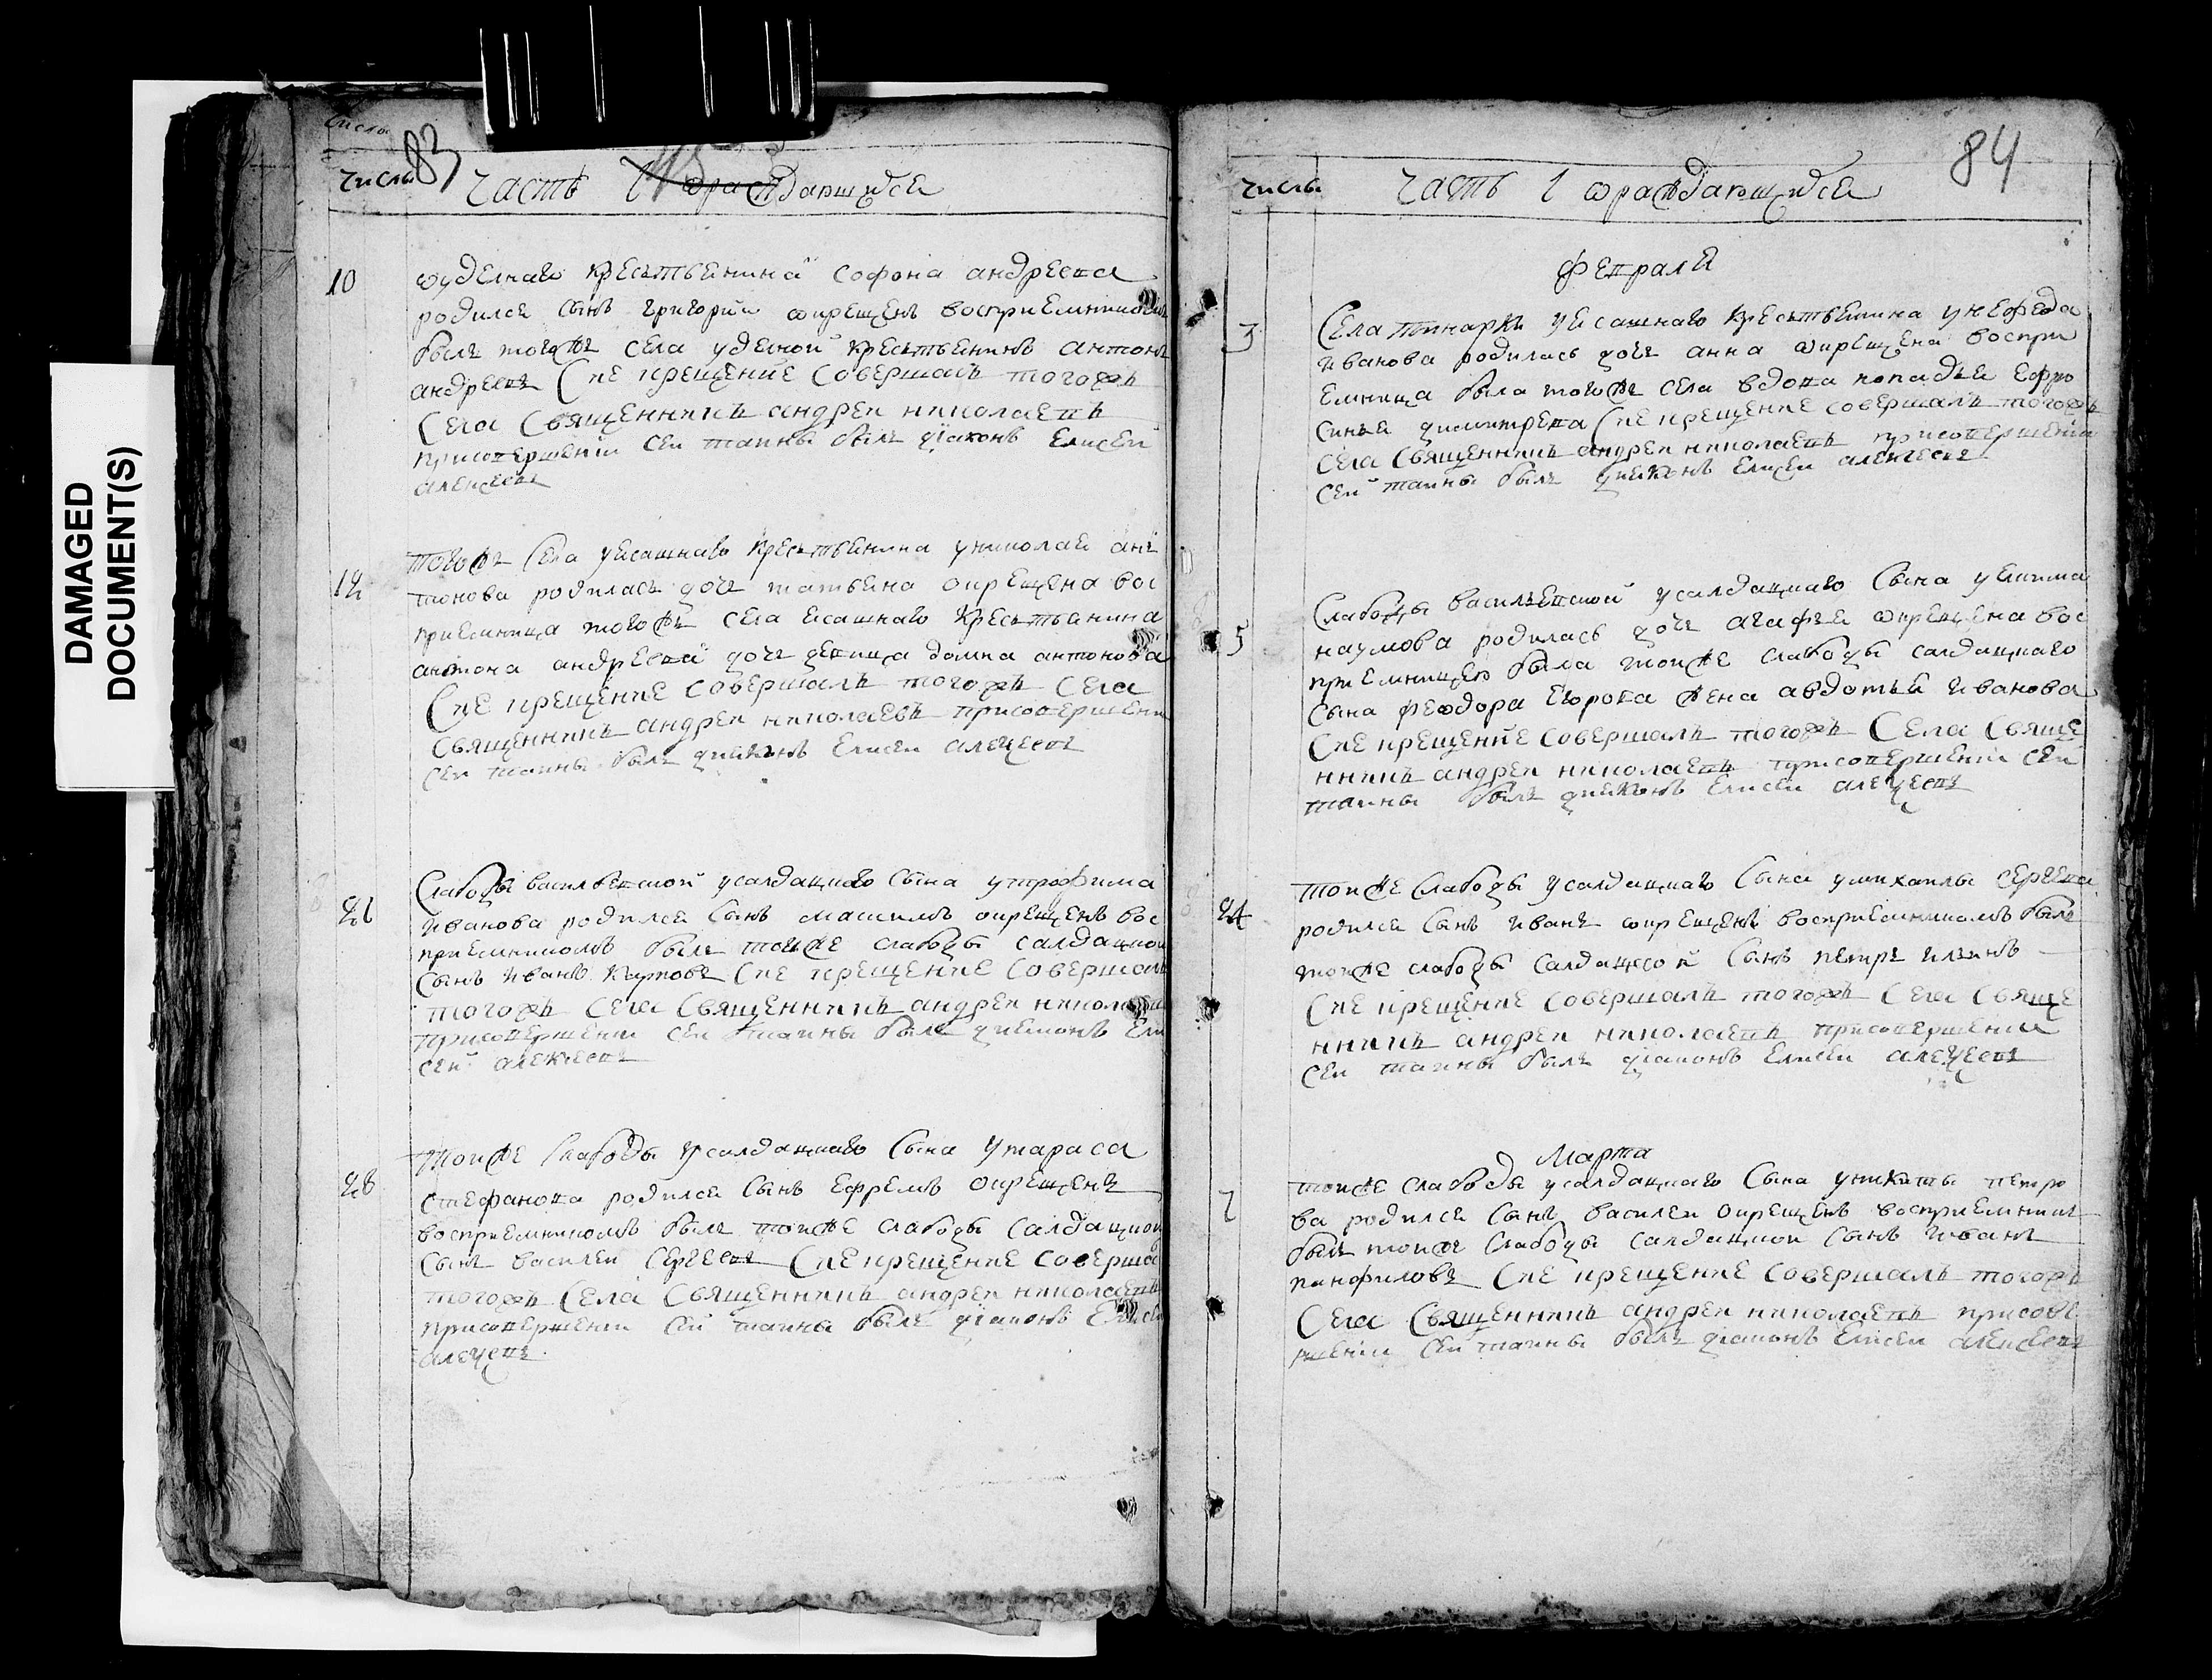 DAMAGED
DOCUMENT(S)
числа
83
числы
часть 1 о раждающихся
10
о уделнаго крестьвенина софона андреева
родился сынъ григорий и крещенъ восприемником
былъ тогоже села уделной крестьвенинъ антонъ
андреевъ Сие крещение совершалъ тогожъ
Села Священникъ андреи николаевъ
при совершении сеи таины былъ диаконъ Елисеи
алексеевъ
12
тогоже села у ясашнаго крестьвенина у николая ан
тонова родилась дочь татьяна окрещена вос
приемница тогожъ села ясашнаго крестьвянина
антона андреева дочь девица домна антонова
Сие крещение совершалъ тогожъ Села
Священникъ андреи николаевъ при совершени
сеи таины былъ диаконъ Елисеи алексеевъ
21
Слабоды васильевской у салдацкаго сына у трофима
иванова родился сынъ максимъ окрещенъ вос
приемникомъ былъ тоиже слабоды салдацкои
сынъ иванъ карповъ Сие крещение совершалъ
тогожъ Села Священникъ андреи николаевъ
при совершени сеи таины былъ диаконъ Ели
сей алексеевъ
28
Тоиже слабоды у салдацкаго сына у тараса
стефанова родился сынъ ефремъ окрещенъ
восприемникомъ былъ тоиже слабоды салдацкои
сынъ василеи сергеевъ Сие крещение соверша
тогожъ Села Священникъ андреи николаевъ
при совершении сеи таины былъ диаконъ Елисеи
алексеевъ
84
числы
часть 1 о раждающихся
февраля
3
Села у ясашнаго крестьвенина у нефеда
иванова родилась дочь анна и крещена воспри
емница была тогоже села вдова попадья ефро
синья димитрева Сие крещение совершалъ тогожъ
села Священникъ андреи николаевъ при совершении
сеи таины былъ диаконъ Елисеи алексеевъ
5
Слабоды васильевской у салдацкаго сына у екима
наумова родилась дочь агафья и крещена вос
приемницею была тоиже слабоды салдацкаго
сына феодора жена авдотья иванова
Сие крещение совершалъ тогожъ Села Свяще
нникъ андреи николаевъ при совершении сеи
таины былъ диаконъ Елисеи алексеевъ
24
тоиже слабоды у салдацкаго сына у михаилы сергеева
родился сынъ иванъ и крещенъ восприемникомъ былъ
тоиже слабоды салдацкой сынъ петръ ильинъ
Сие крещение совершалъ тогожъ Села Свяще
нникъ андреи николаевъ при совершении
сеи таины былъ диаконъ Елисеи алексеевъ
Марта
7
тоиже слабоды у салдацкаго сына у никиты петро
ва родился сынъ василеи окрещенъ восприемникъ
былъ тоиже слабоды салдацкои сынъ иванъ
панфиловъ Сие крещение совершалъ тогожъ
Села Священникъ андреи николаевъ при сове
ршении сеи таины былъ диаконъ Елисеи алексеевъ